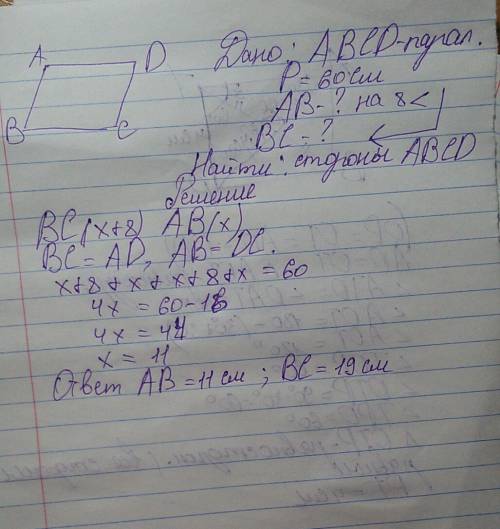 A D
B C
Дано: ABCD-парал.
P = 60см
AB-? на 8<
BC-?
Найти: стороны ABCD
Решение
BC(x+8) AB(x)
BC=AD, AB=DC.
x+8+x+x+8+x=60
4x = 60-16
4x = 44
x = 11
Ответ AB=11см; BC=19см